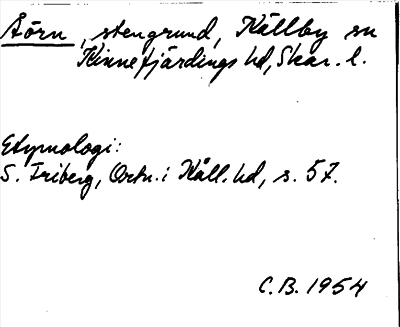 Åörn, stengrund, Källby sn
Kinnefjärdings hd, Skar. l.
Etymologi:
S. Friberg, Ortn. i Kåll. hd, s. 57.
C.B. 1954